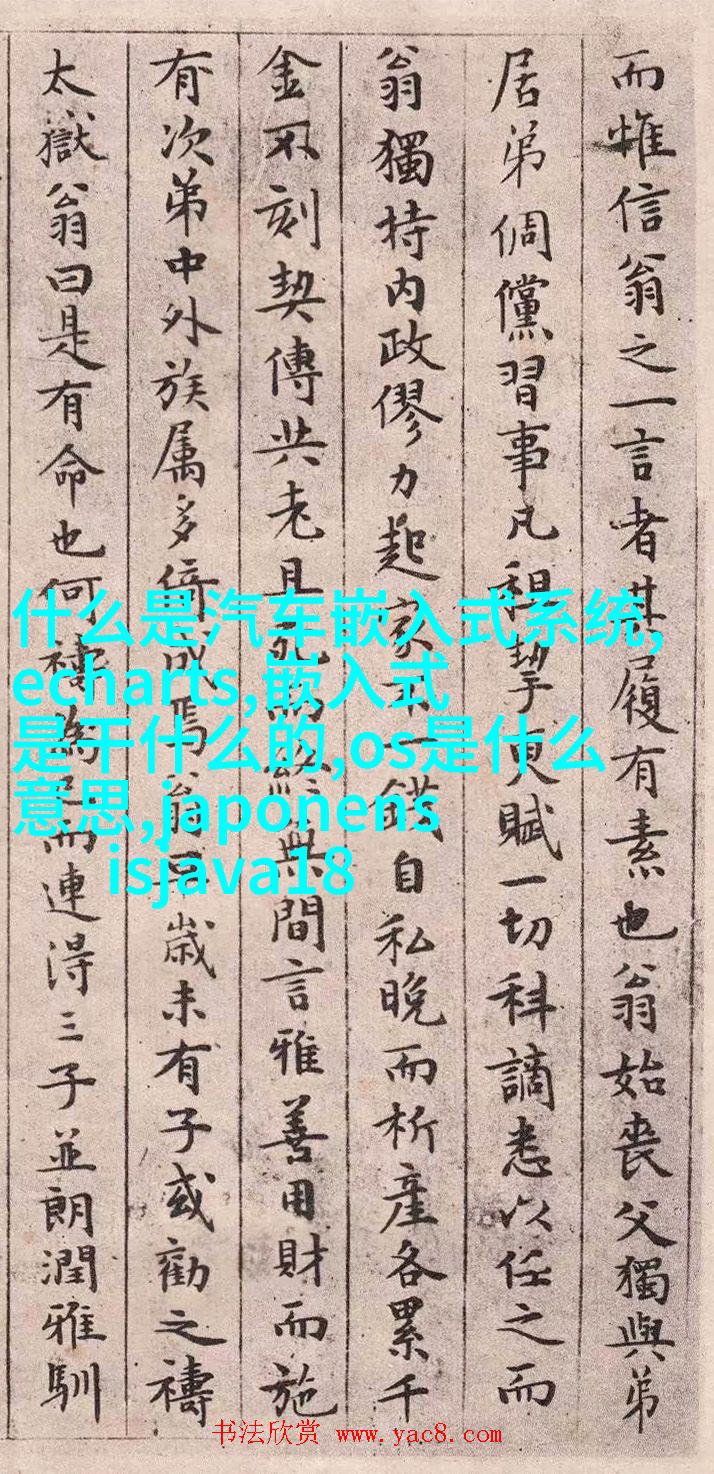 而惟信翁之一言者其履有素也翁始喪父獨與弟
居弟倜儻習事凡租挈更賦一切科謫悉以任之而
翁獨持内政僇力起家不一錢自私晚而析產各累千
金不刻契傳共老且死始終無間言雅善用財而施
有次第中外族属多倚成焉翁 歲未有子或勸之禱
太嶽翁曰是有命也何禱為 而連淂三子並朗潤雅馴
什么是汽车嵌入式系统,
echarts,嵌入式
是干什么的,os是什么
意思,japonens
isjava18
书法欣赏 www.yac8.com